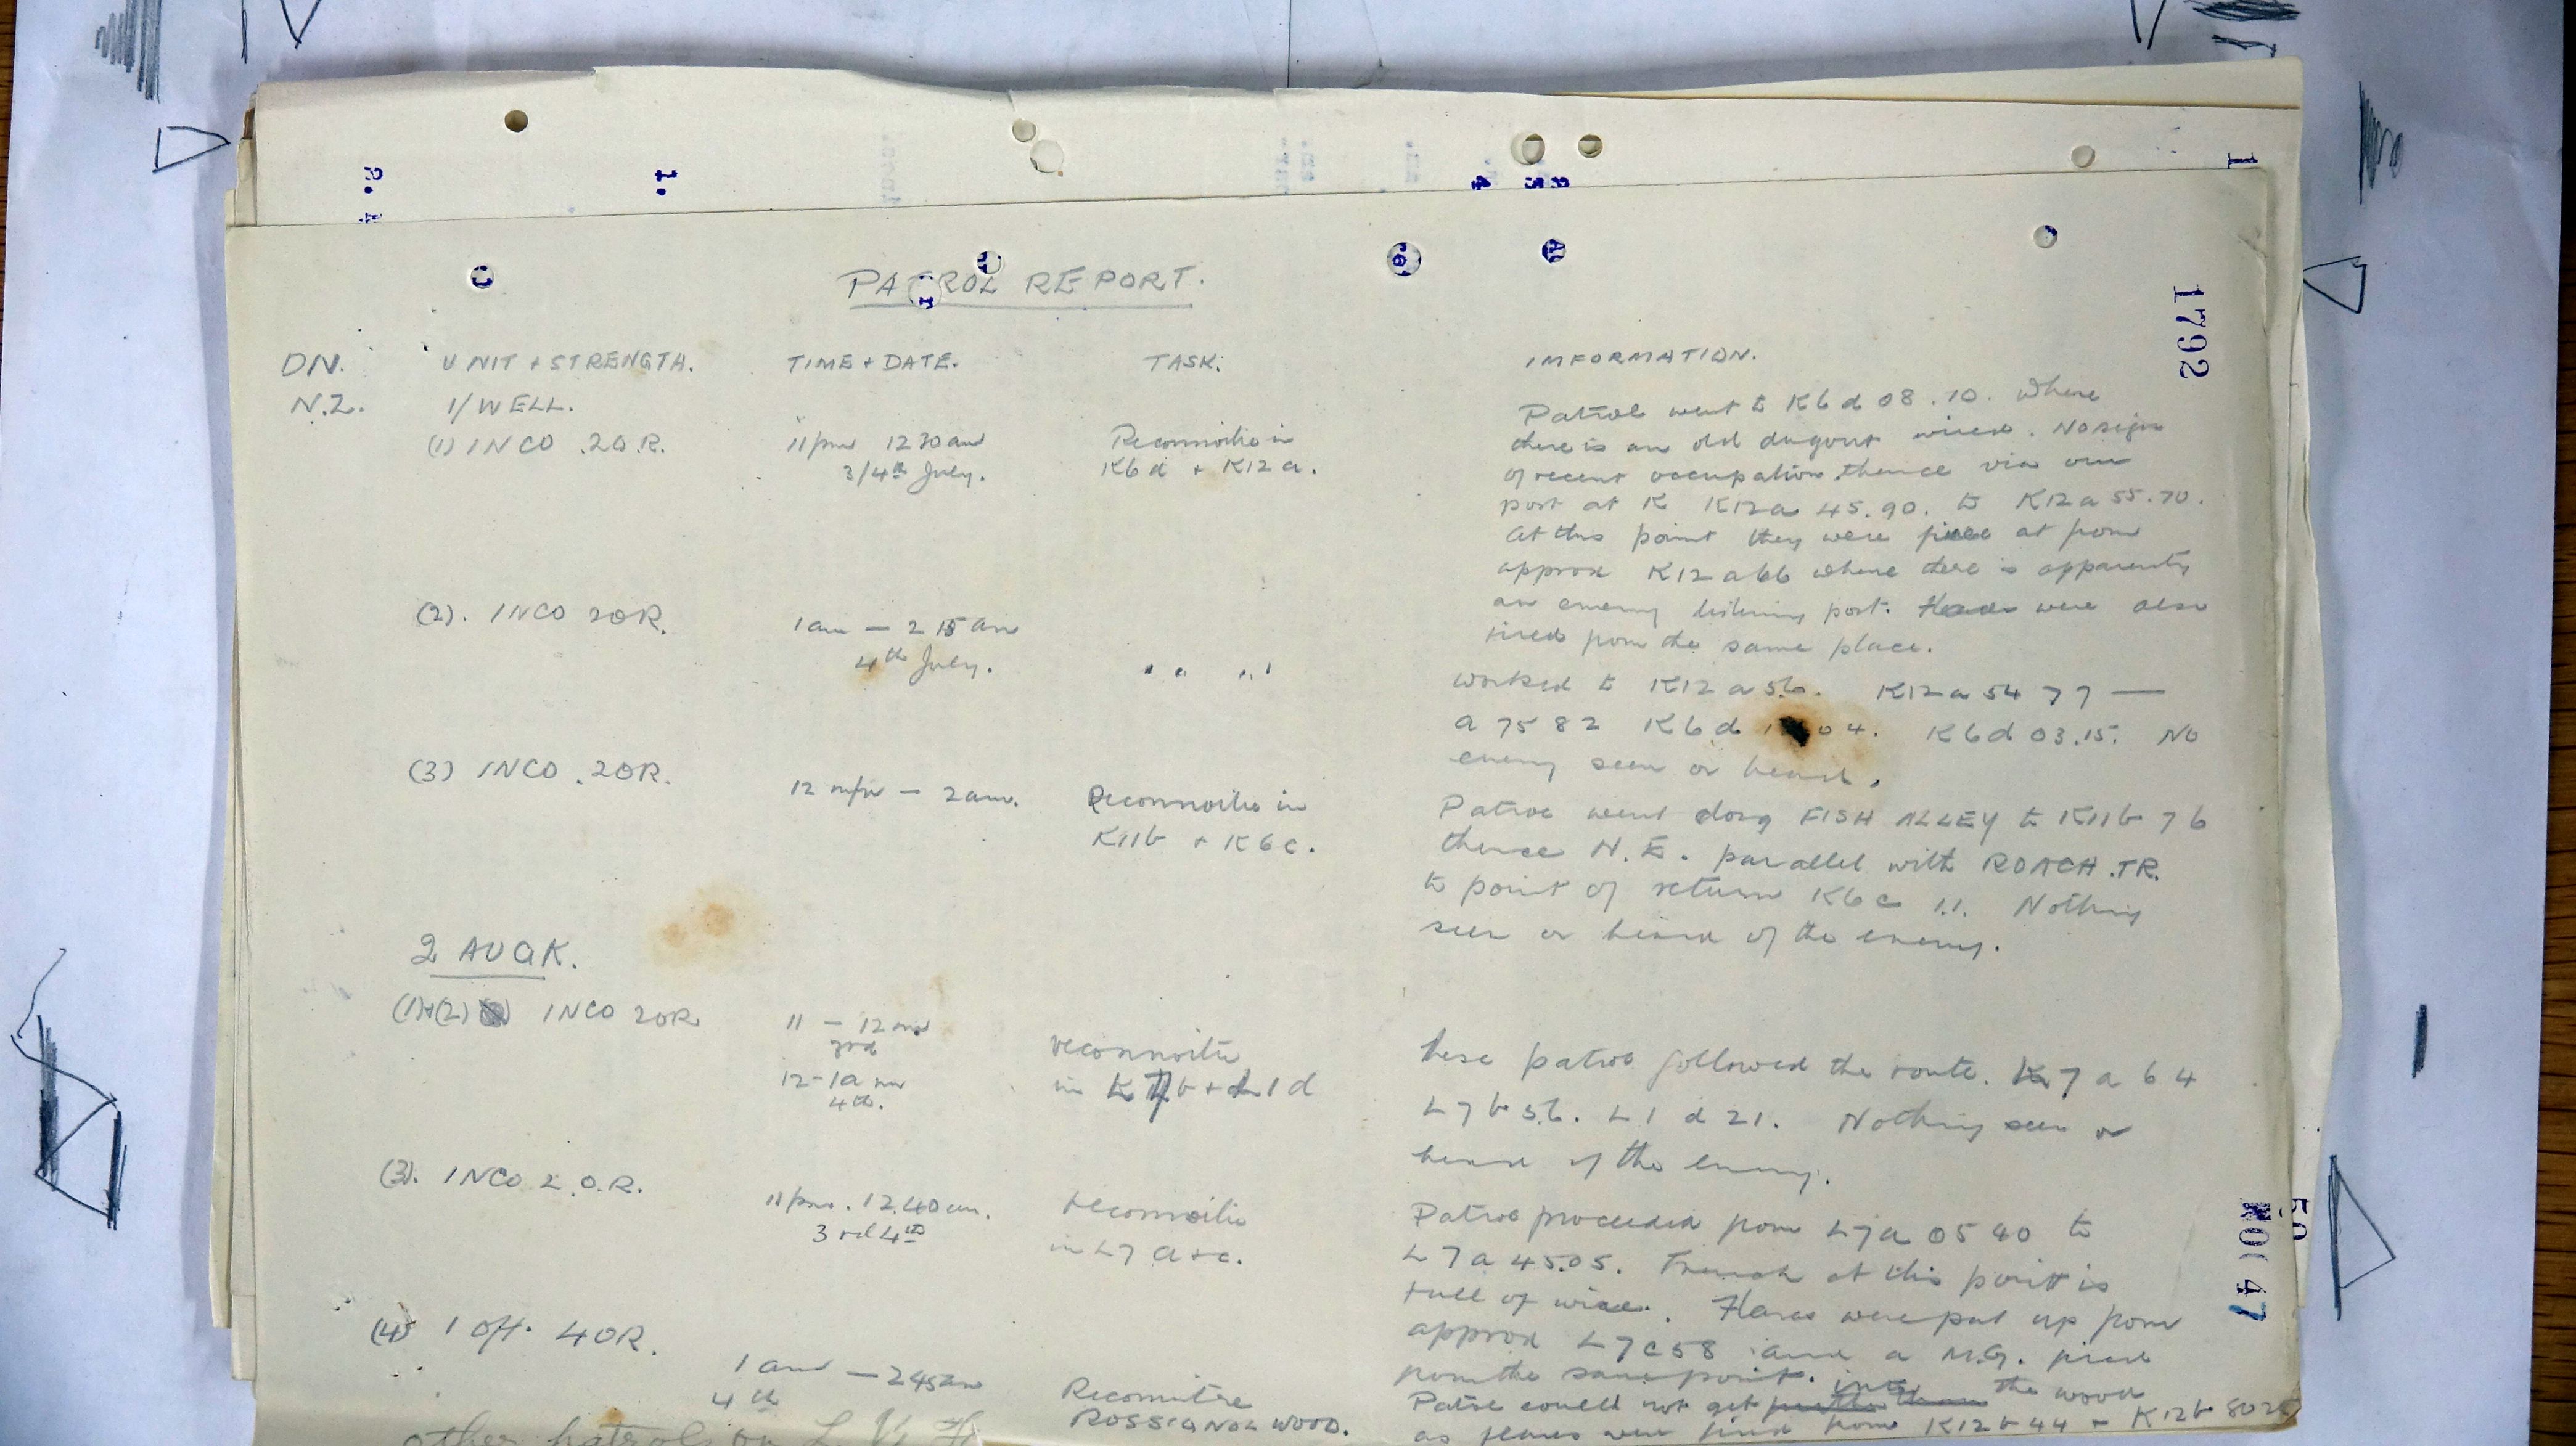 PATROL REPORT.
1792
DN. UNIT + STRENGTH. TIME + DATE. TASK. INFORMATION.
N.Z. 1/WELL.
(1) 1NCO .2O.R. 11pm 1230am Reconnoitre in
3/4th July. K6d + K12a.
Patrol went to K6d 08.10. where
there is an old dugout wired. No sign
of recent occupation thence via our
post at K K12a 45.90. to K12a 55.70.
At this point they were fired at from
approx K12a66 where there is apparently
an enemy listening post. were also
fired from the same place.
(2). 1NCO 2OR. 1am — 215am
4th July. " " " "
worked to K12a5.6. K12a 54 77 —
a 75 82 K6d 04. K6d 03.15. No
enemy seen or heard.
(3) 1NCO .2OR. 12 mn — 2am. Reconnoitre in
K11b + K6c.
Patrol went along FISH ALLEY to K11b 76
thence N.E. parallel with ROACH .TR.
to point of return K6c 1.1. Nothing
seen or heard of the enemy.
2 AUCK.
(1)+(2) 1NCO 2OR 11 — 12mn
3rd
12-1am
4th.
reconnoitre
in K 7b + L1d
hese patrol followed the route. 7a 64
L7b5.6. L1d21. Nothing seen or
heard of the enemy.
(3). 1NCO 2.O.R. 11pm. 12.40am.
3rd 4th
reconnoitre
in L7 a+c.
Patrol proceeded from L7a 05 40 to
L7a 45.05. Trench at this point is
full of wire. Flares were put up from
approx L7c58 and a M.G. fired
from the same point.
(4) 1 Off. 4OR. 1am — 245am
4th
Reconnoitre
ROSSIGNOL WOOD.
Patrol could not get into the wood
as flares were fired from K12b44 + K12b 8025
other patrols on
50
47